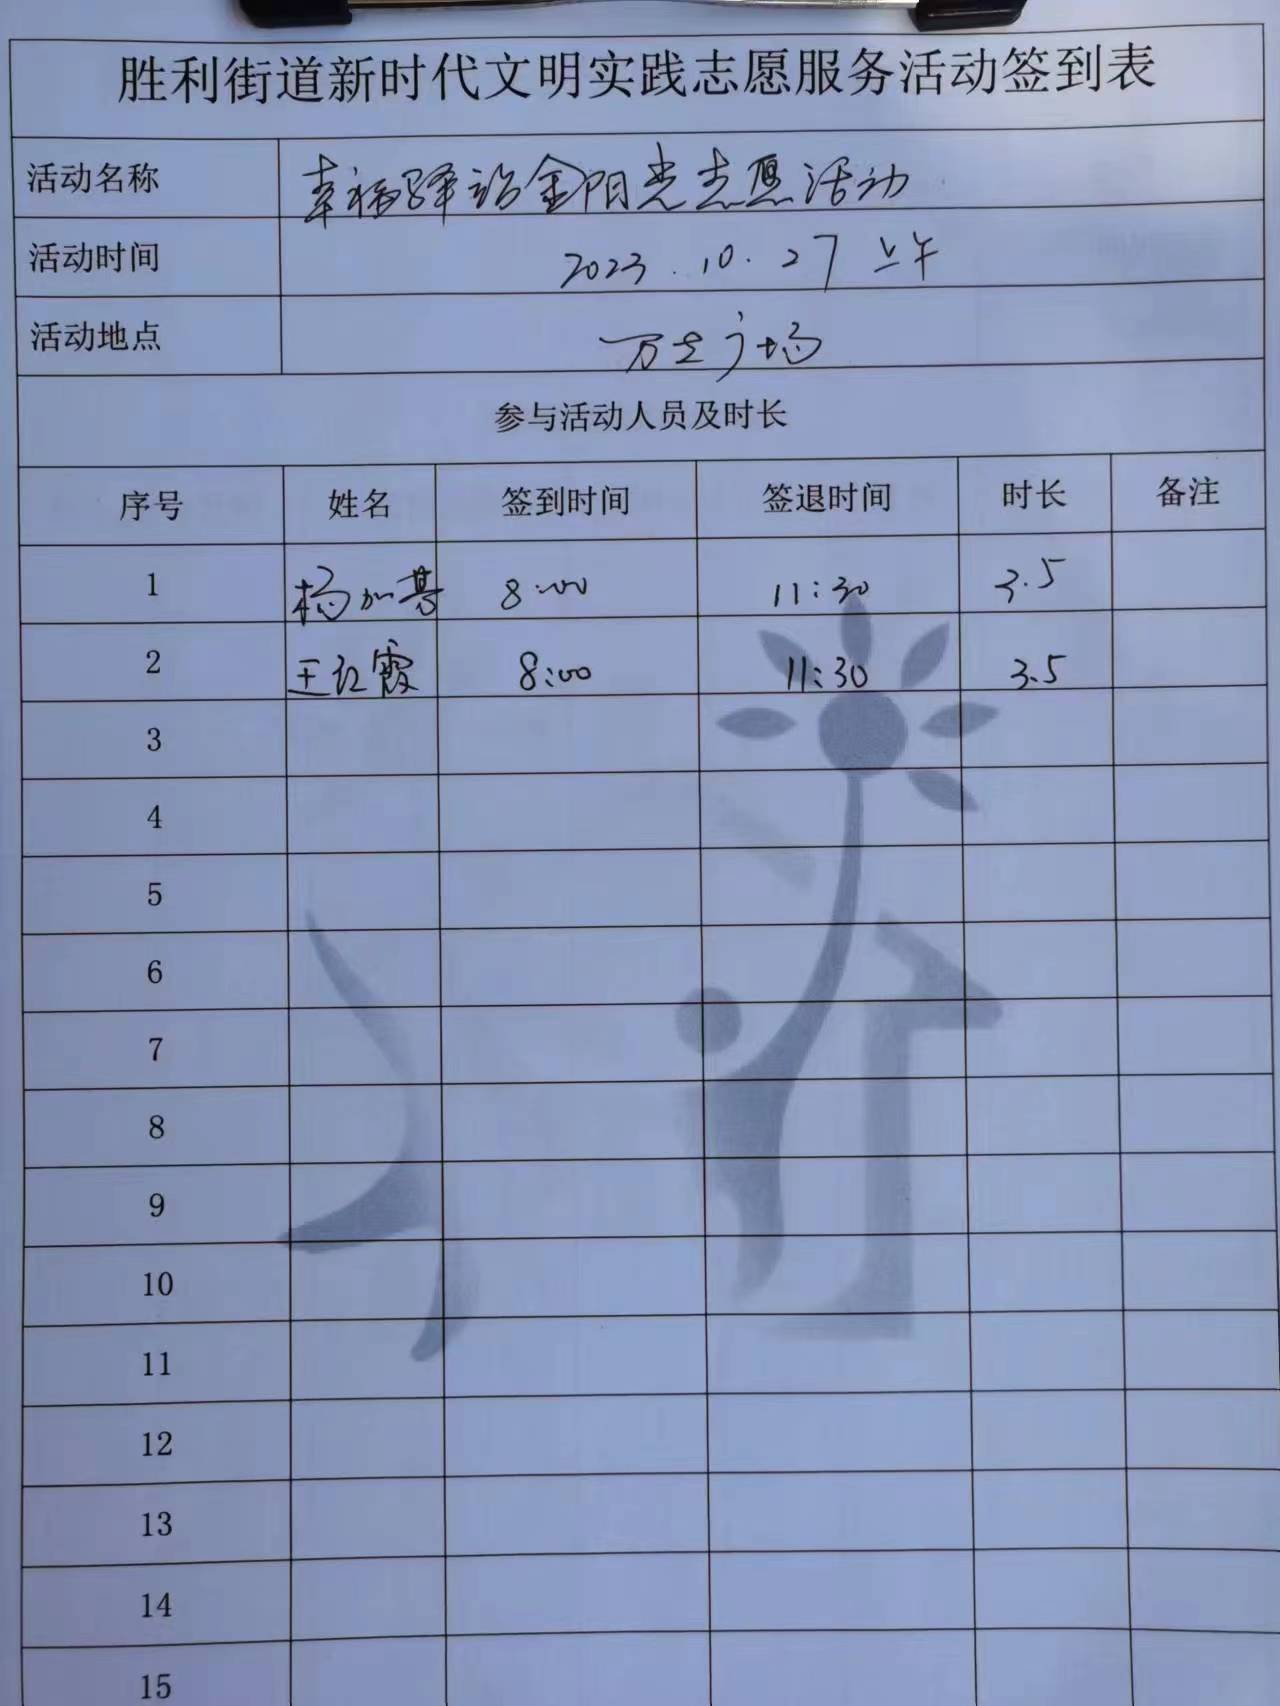 胜利街道新时代文明实践志愿服务活动签到表
活动名称 幸福驿站金阳光志愿活动
活动时间 2023.10.27 上午
活动地点 万达广场
参与活动人员及时长
序号 姓名 签到时间 签退时间 时长 备注
1 杨加慕 8:00 11:30 3.5
2 王红霞 8:00 11:30 3.5
3
4
5
6
7
8
9
10
11
12
13
14
15